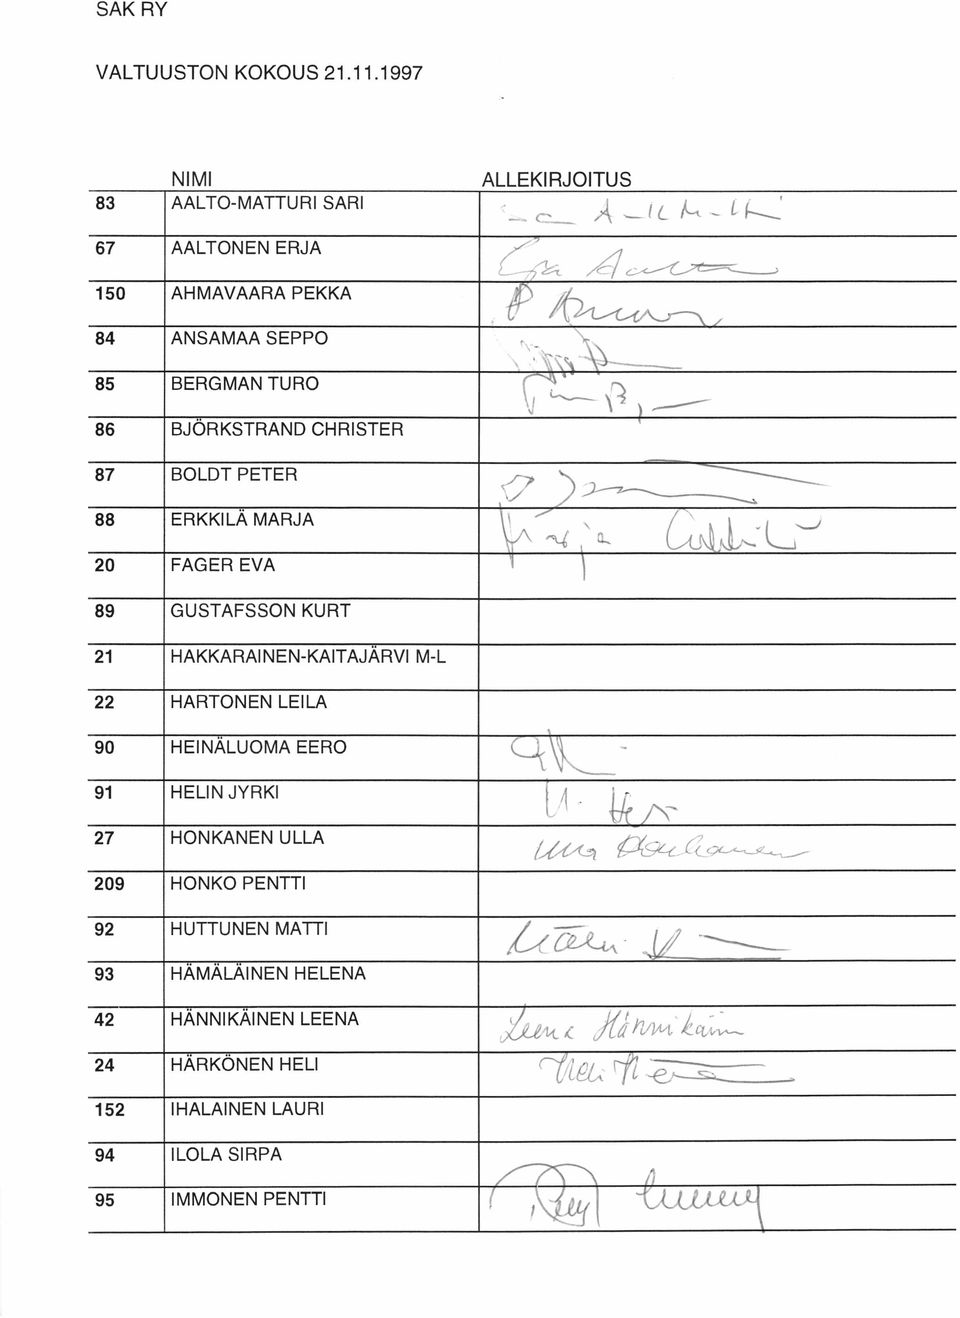 SAK RY
VALTUUSTON KOKOUS 21.11.1997
NIMI ALLEKIRJOITUS
83 AALTO-MATTURI SARI
67 AALTONEN ERJA Erja Aalto
150 AHMAVAARA PEKKA
84 ANSAMAA SEPPO
85 BERGMAN TURO
86 BJÖRKSTRAND CHRISTER
87 BOLDT PETER
88 ERKKILÄ MARJA Marja Erkkilä
20 FAGER EVA
89 GUSTAFSSON KURT
21 HAKKARAINEN-KAITAJÄRVI M-L
22 HARTONEN LEILA
90 HEINÄLUOMA EERO
91 HELIN JYRKI
27 HONKANEN ULLA Ulla Honkanen
209 HONKO PENTTI
92 HUTTUNEN MATTI
93 HÄMÄLÄINEN HELENA
42 HÄNNIKÄINEN LEENA Leena Hännikäinen
24 HÄRKÖNEN HELI Heli
152 IHALAINEN LAURI
94 ILOLA SIRPA
95 IMMONEN PENTTI